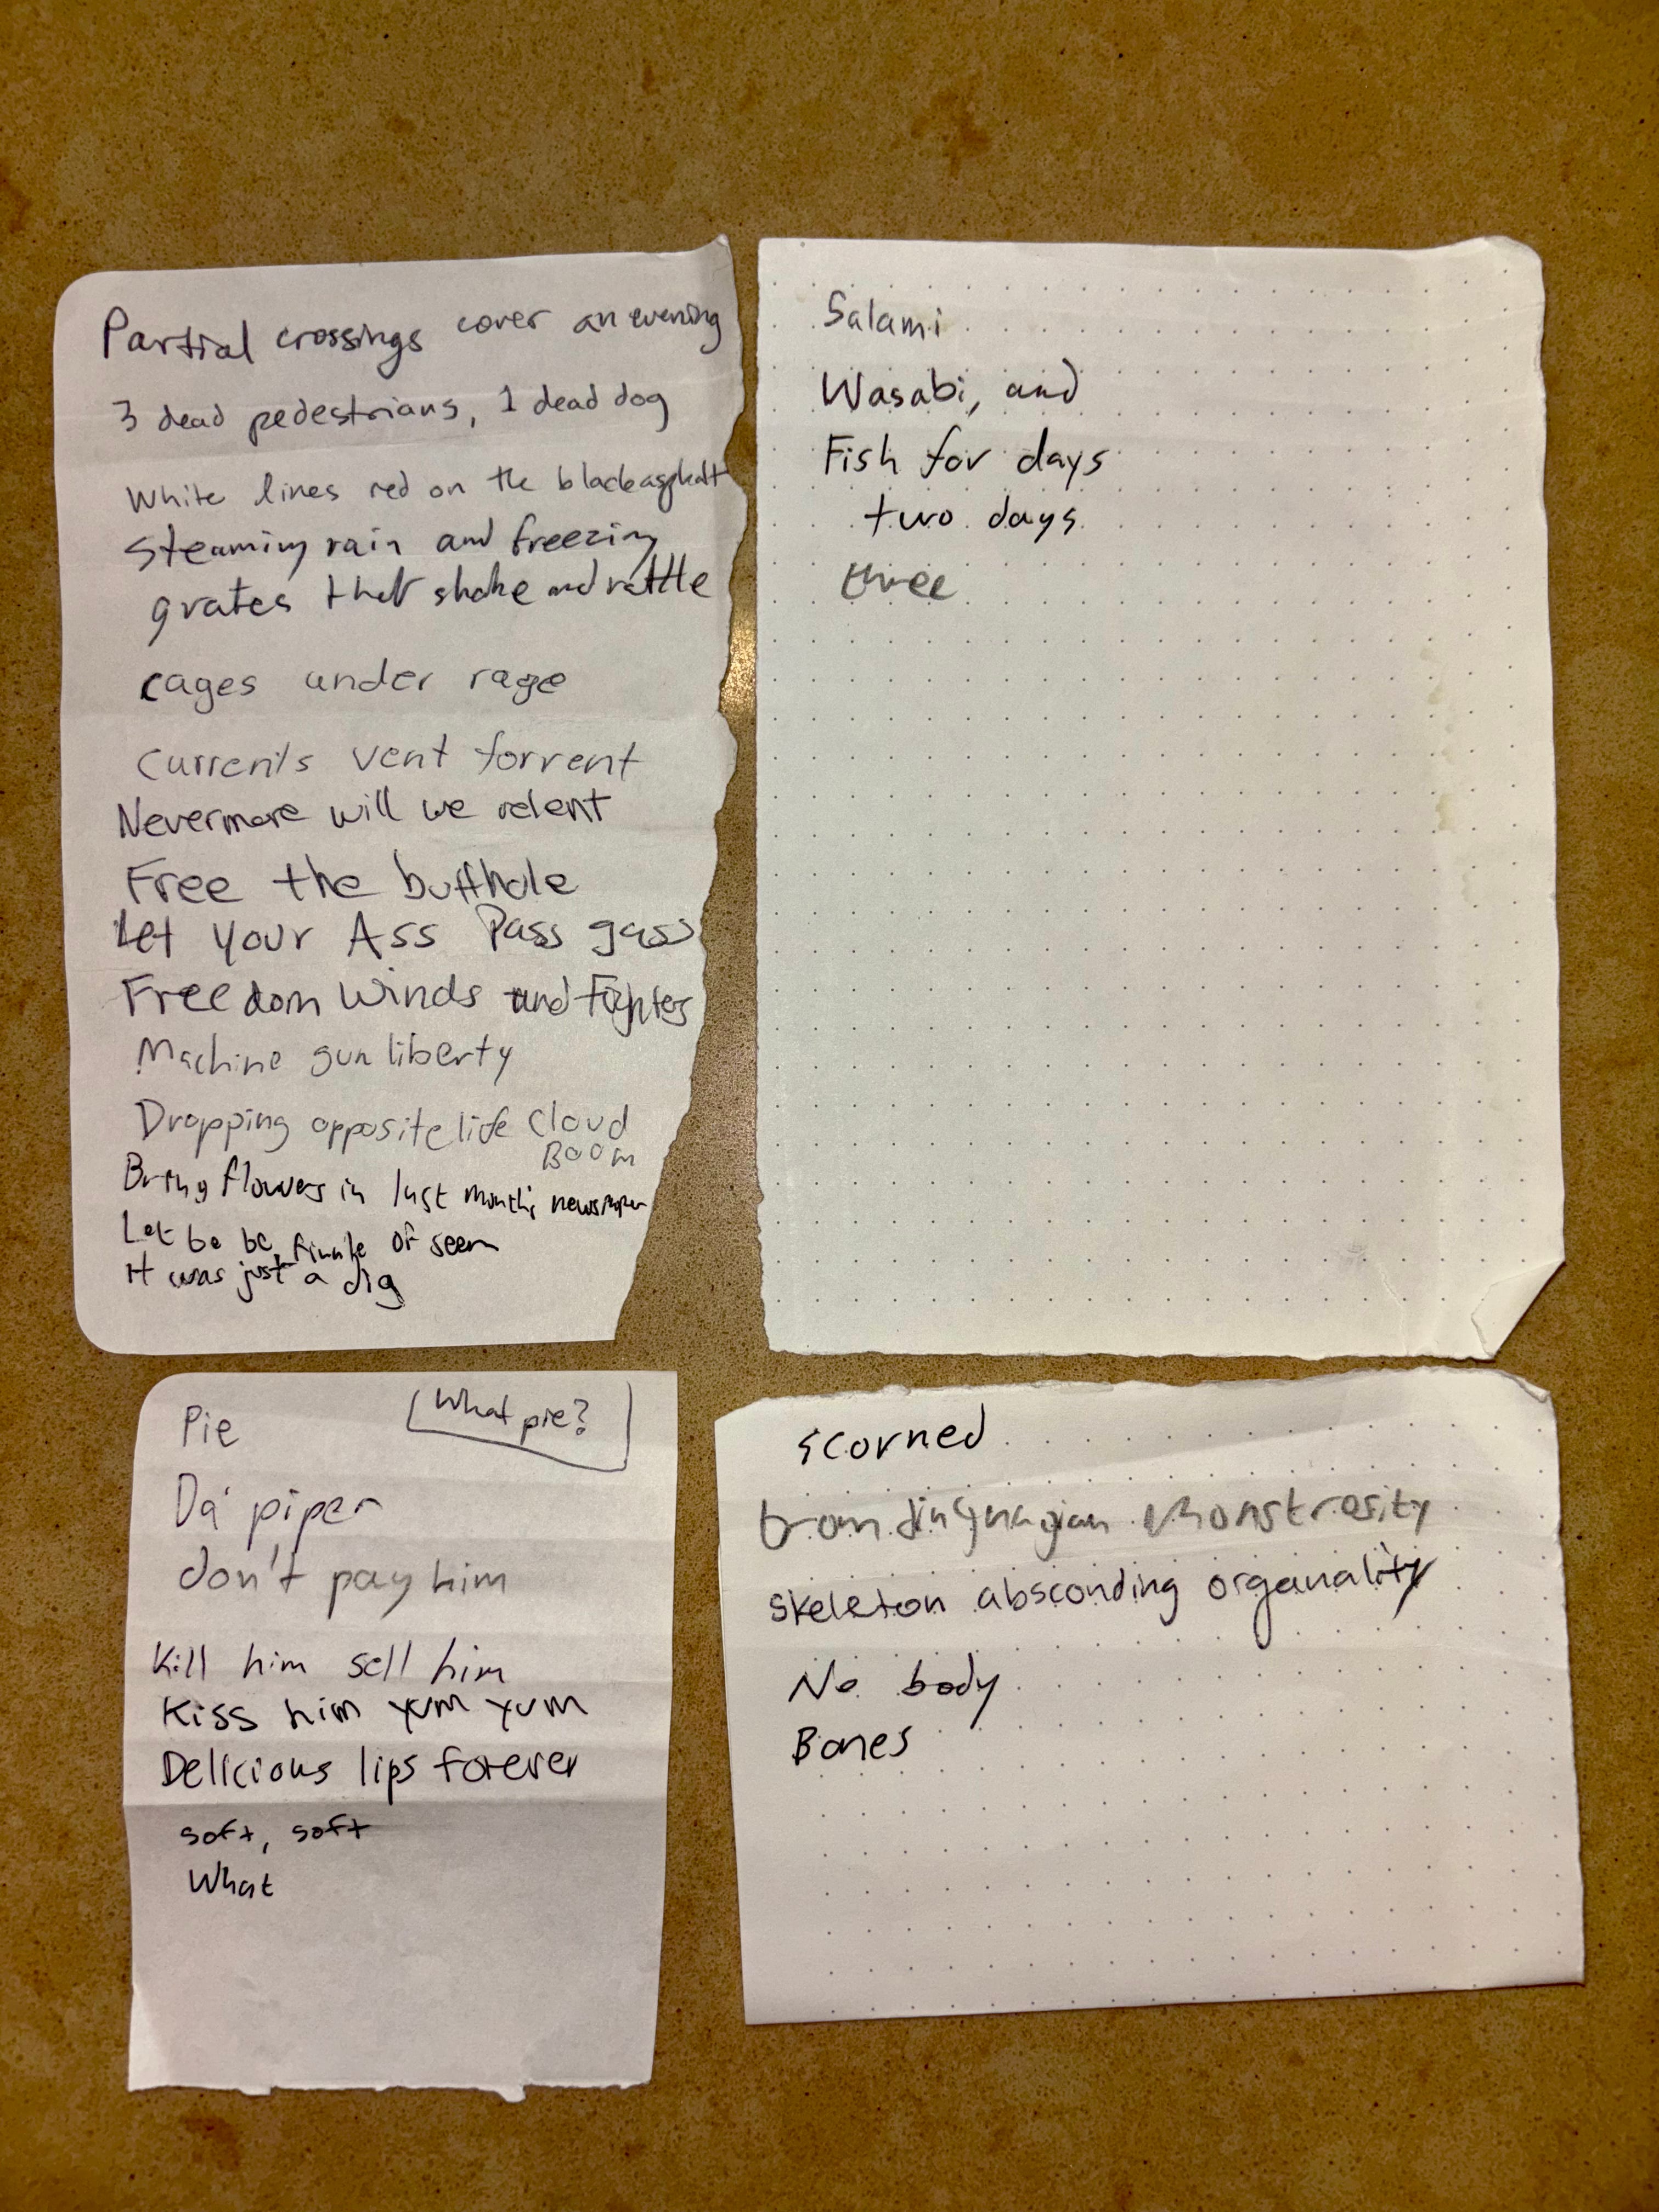 Partial crossings cover an evening
3 dead pedestrians, 1 dead dog
White lines red on the black asphalt
Steaming rain and freezing
grates that shake and rattle
cages under rage
Currents vent torrent
Nevermore will we relent
Free the butthole
Let your Ass Pass gass
Freedom Winds and Fighter
Machine gun liberty
Dropping opposite life Cloud
Boom
Bring flowers in last month's newspaper
Let be be finale of seem
It was just a dig
Salami
Wasabi, and
Fish for days
two days
three
Pie
What pie?
Da' piper
don't pay him
Kill him sell him
Kiss him yum yum
Delicious lips forever
soft, soft
What
scorned
monstrosity
skeleton absconding organality
No body
Bones